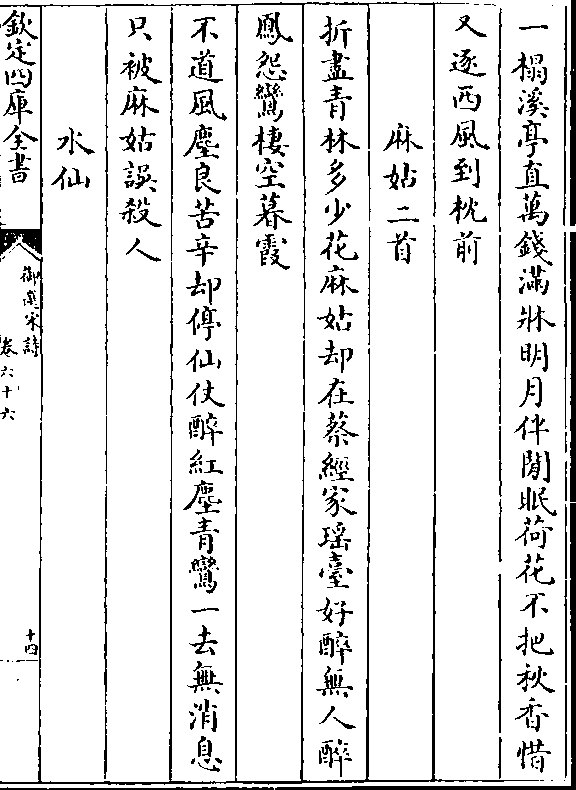 一榻溪亭直萬錢滿牀明月伴閒眠荷花不把秋香惜
又逐西風到枕前
麻姑二首
折盡青林多少花麻姑却在蔡經家瑶臺好醉無人醉
鳳怨鸞棲空暮霞
不道風塵良苦辛却停仙仗醉紅塵青鸞一去無消息
只被麻姑誤殺人
水仙
欽定四庫全書
御選宋詩
卷六十六
十四